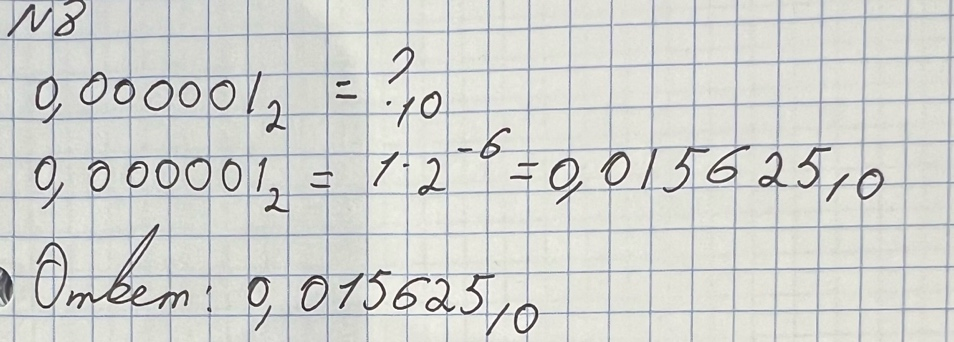 №8
0,000001₂ = ?₁₀
0,000001₂ = 1·2⁻⁶ = 0,015625₁₀
Ответ: 0,015625₁₀